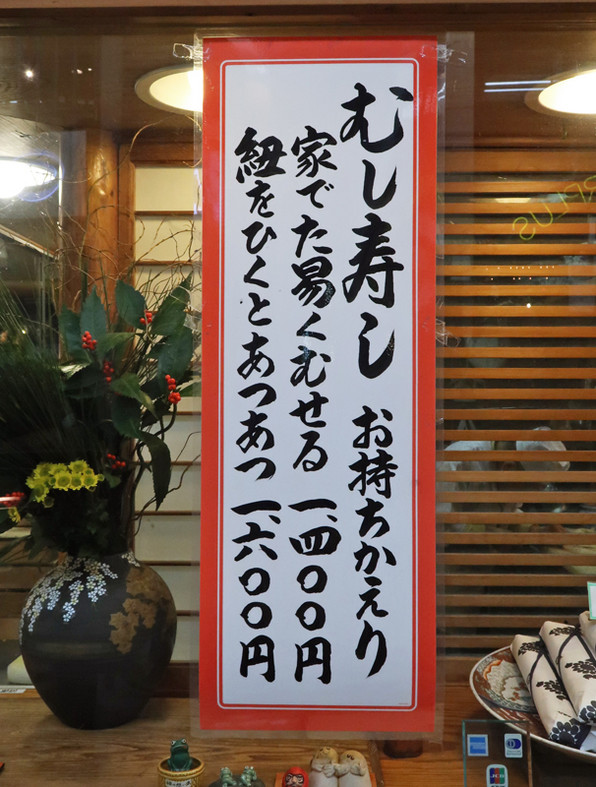 むし寿し お持ちかえり
家でた易くむせる 一、四〇〇円
紐をひくとあつあつ 一、六〇〇円
PLUS
JCB